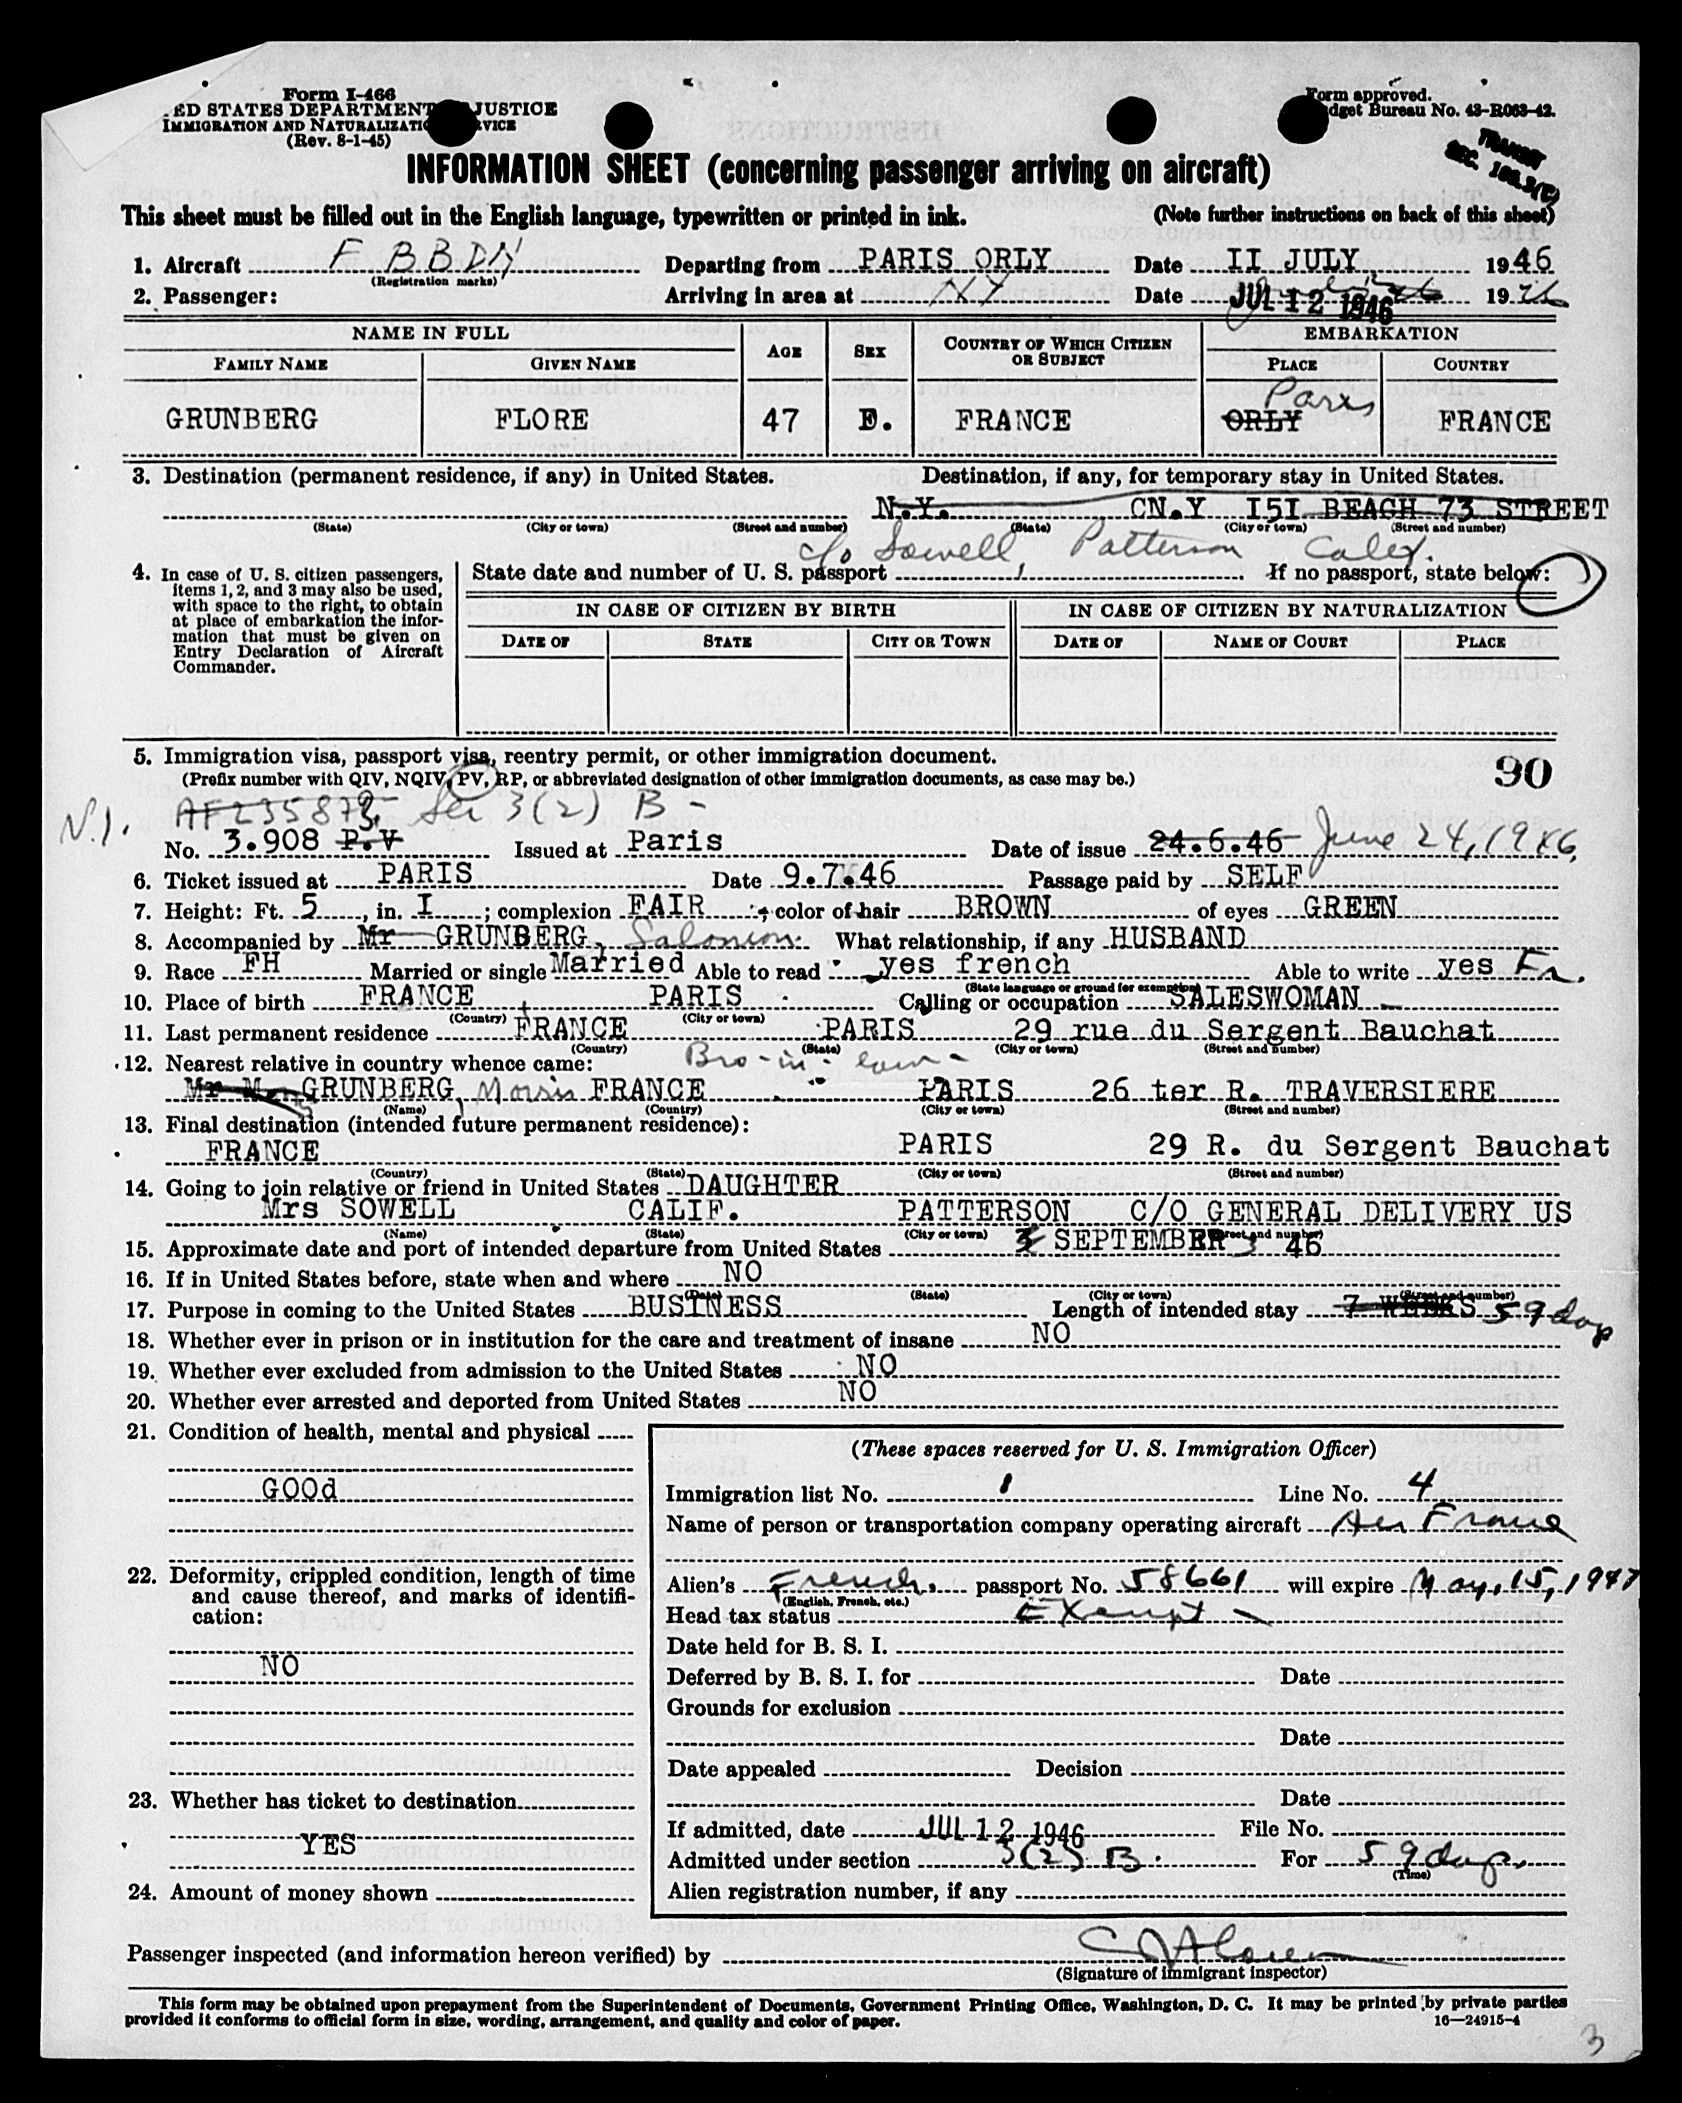 Form I-466
ED STATES DEPARTMENT JUSTICE
IMMIGRATION AND NATURALIZATI VICE
(Rev. 8-1-45)
Form approved.
dget Bureau No. 43-R063-42.
TRANSIT
SEC.
INFORMATION SHEET (concerning passenger arriving on aircraft)
This sheet must be filled out in the English language, typewritten or printed in ink. (Note further instructions on back of this sheet)
1. Aircraft F BBDN Departing from PARIS ORLY Date II JULY 1946
(Registration marks)
2. Passenger: Arriving in area at NY Date JUL 12 1946 1946
NAME IN FULL AGE SEX COUNTRY OF WHICH CITIZEN OR SUBJECT EMBARKATION
FAMILY NAME GIVEN NAME PLACE COUNTRY
Paris
GRUNBERG FLORE 47 F. FRANCE ORLY FRANCE
3. Destination (permanent residence, if any) in United States. Destination, if any, for temporary stay in United States.
N.Y. CN.Y I5I BEACH 73 STREET
(State) (City or town) (Street and number) (State) (City or town) (Street and number)
c/o Sowell, Patterson Calif.
4. In case of U. S. citizen passengers, items 1, 2, and 3 may also be used, with space to the right, to obtain at place of embarkation the information that must be given on Entry Declaration of Aircraft Commander.
State date and number of U. S. passport If no passport, state below:
IN CASE OF CITIZEN BY BIRTH IN CASE OF CITIZEN BY NATURALIZATION
DATE OF STATE CITY OR TOWN DATE OF NAME OF COURT PLACE
5. Immigration visa, passport visa, reentry permit, or other immigration document. 90
(Prefix number with QIV, NQIV, PV, RP, or abbreviated designation of other immigration documents, as case may be.)
N.I. AF235879 Sec 3(2) B -
No. 3.908 P.V Issued at Paris Date of issue 24.6.46 June 24, 1946,
6. Ticket issued at PARIS Date 9.7.46 Passage paid by SELF
7. Height: Ft. 5, in. I; complexion FAIR; color of hair BROWN of eyes GREEN
8. Accompanied by Mr GRUNBERG, Salomon What relationship, if any HUSBAND
9. Race FH Married or single Married Able to read yes french Able to write yes Fr.
(State language or ground for exemption)
10. Place of birth FRANCE PARIS Calling or occupation SALESWOMAN
(Country) (City or town)
11. Last permanent residence FRANCE PARIS 29 rue du Sergent Bauchat
(Country) (State) (City or town) (Street and number)
12. Nearest relative in country whence came: Bro-in-law-
Mr GRUNBERG, Morris FRANCE PARIS 26 ter R. TRAVERSIERE
(Name) (Country) (City or town) (Street and number)
13. Final destination (intended future permanent residence):
FRANCE PARIS 29 R. du Sergent Bauchat
(Country) (State) (City or town) (Street and number)
14. Going to join relative or friend in United States DAUGHTER
Mrs SOWELL CALIF. PATTERSON C/O GENERAL DELIVERY US
(Name) (State) (City or town) (Street and number)
15. Approximate date and port of intended departure from United States SEPTEMBER 3 46
16. If in United States before, state when and where NO
(Date) (State) (City or town) (Street and number)
17. Purpose in coming to the United States BUSINESS Length of intended stay 7 WEEKS 59 days
18. Whether ever in prison or in institution for the care and treatment of insane NO
19. Whether ever excluded from admission to the United States NO
20. Whether ever arrested and deported from United States NO
21. Condition of health, mental and physical
GOOd
22. Deformity, crippled condition, length of time and cause thereof, and marks of identification:
NO
23. Whether has ticket to destination
YES
24. Amount of money shown
(These spaces reserved for U. S. Immigration Officer)
Immigration list No. 1 Line No. 4
Name of person or transportation company operating aircraft Air France
Alien's French passport No. 58661 will expire May, 15, 1947
(English, French, etc.)
Head tax status Exempt -
Date held for B. S. I.
Deferred by B. S. I. for Date
Grounds for exclusion
Date
Date appealed Decision
Date
If admitted, date JUL 12 1946 File No.
Admitted under section 3(2) B. For 59 days
(Time)
Alien registration number, if any
Passenger inspected (and information hereon verified) by
(Signature of immigrant inspector)
This form may be obtained upon prepayment from the Superintendent of Documents, Government Printing Office, Washington, D. C. It may be printed by private parties
provided it conforms to official form in size, wording, arrangement, and quality and color of paper. 16—24915-4
3